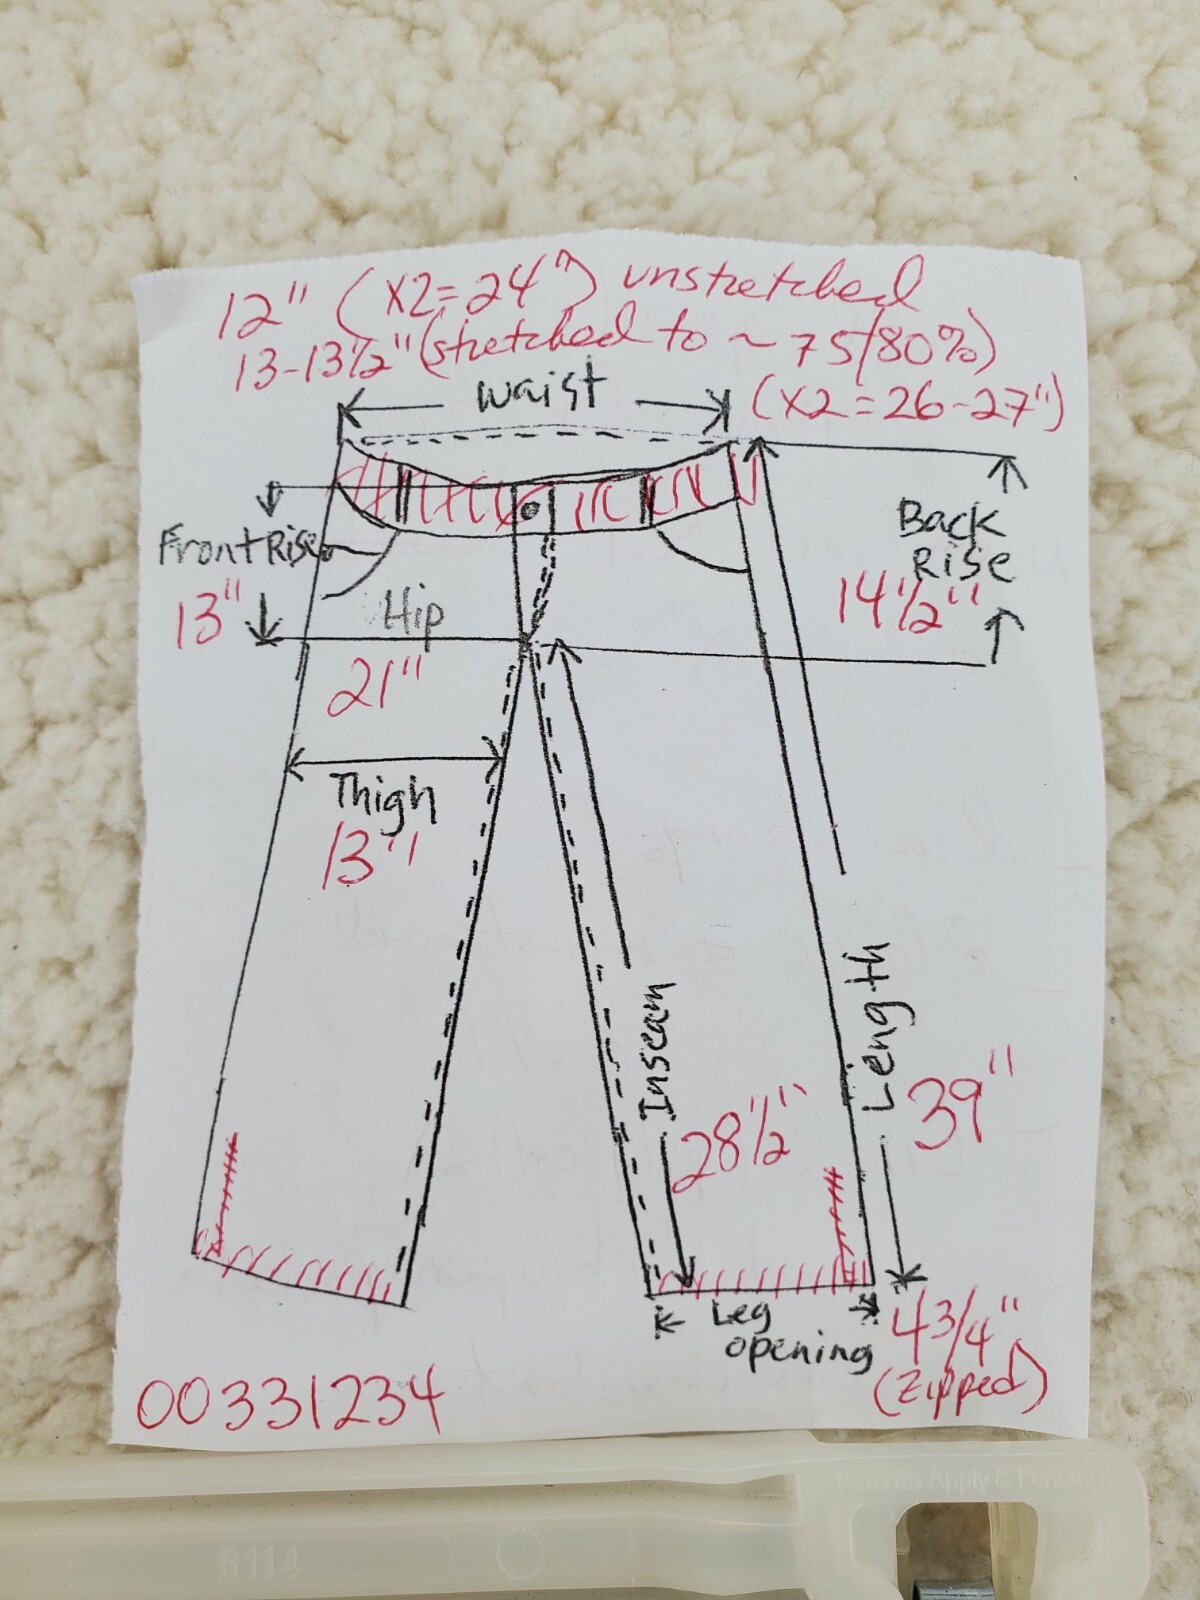 12" (X2=24") unstretched
13-13½" (stretched to ~75/80%)
(X2=26-27")
Waist
Front Rise
13"
Back
Rise
14½"
Hip
21"
Thigh
13"
Inseam
28½"
Length
39"
Leg
opening
4¾"
(Zipped)
00331234
Patents Apply & Pending
6114